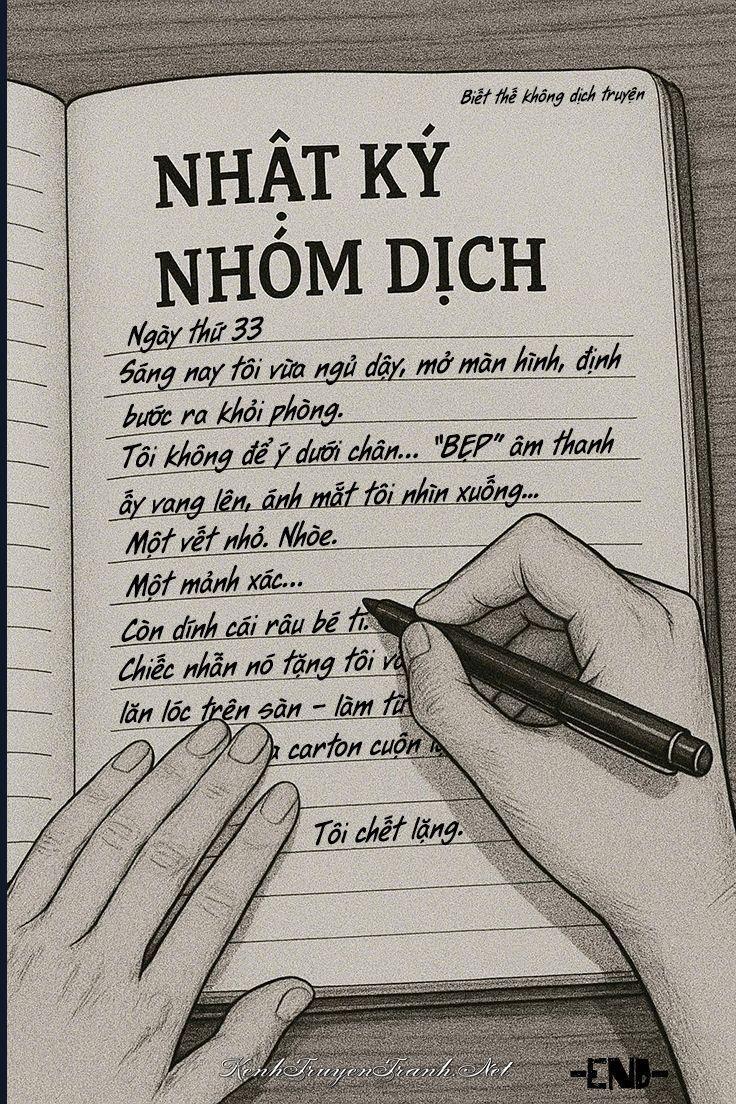 Biết thế không dịch truyện
NHẬT KÝ
NHÓM DỊCH
Ngày thứ 33
Sáng nay tôi vừa ngủ dậy, mở màn hình, định
bước ra khỏi phòng.
Tôi không để ý dưới chân... "BẸP" âm thanh
ấy vang lên, ánh mắt tôi nhìn xuống...
Một vết nhỏ. Nhòe.
Một mảnh xác...
Còn dính cái râu bé tí.
Chiếc nhẫn nó tặng tôi
lăn lóc trên sàn – làm từ
carton cuộn
Tôi chết lặng.
KenhTruyenTranh.Net
-END-